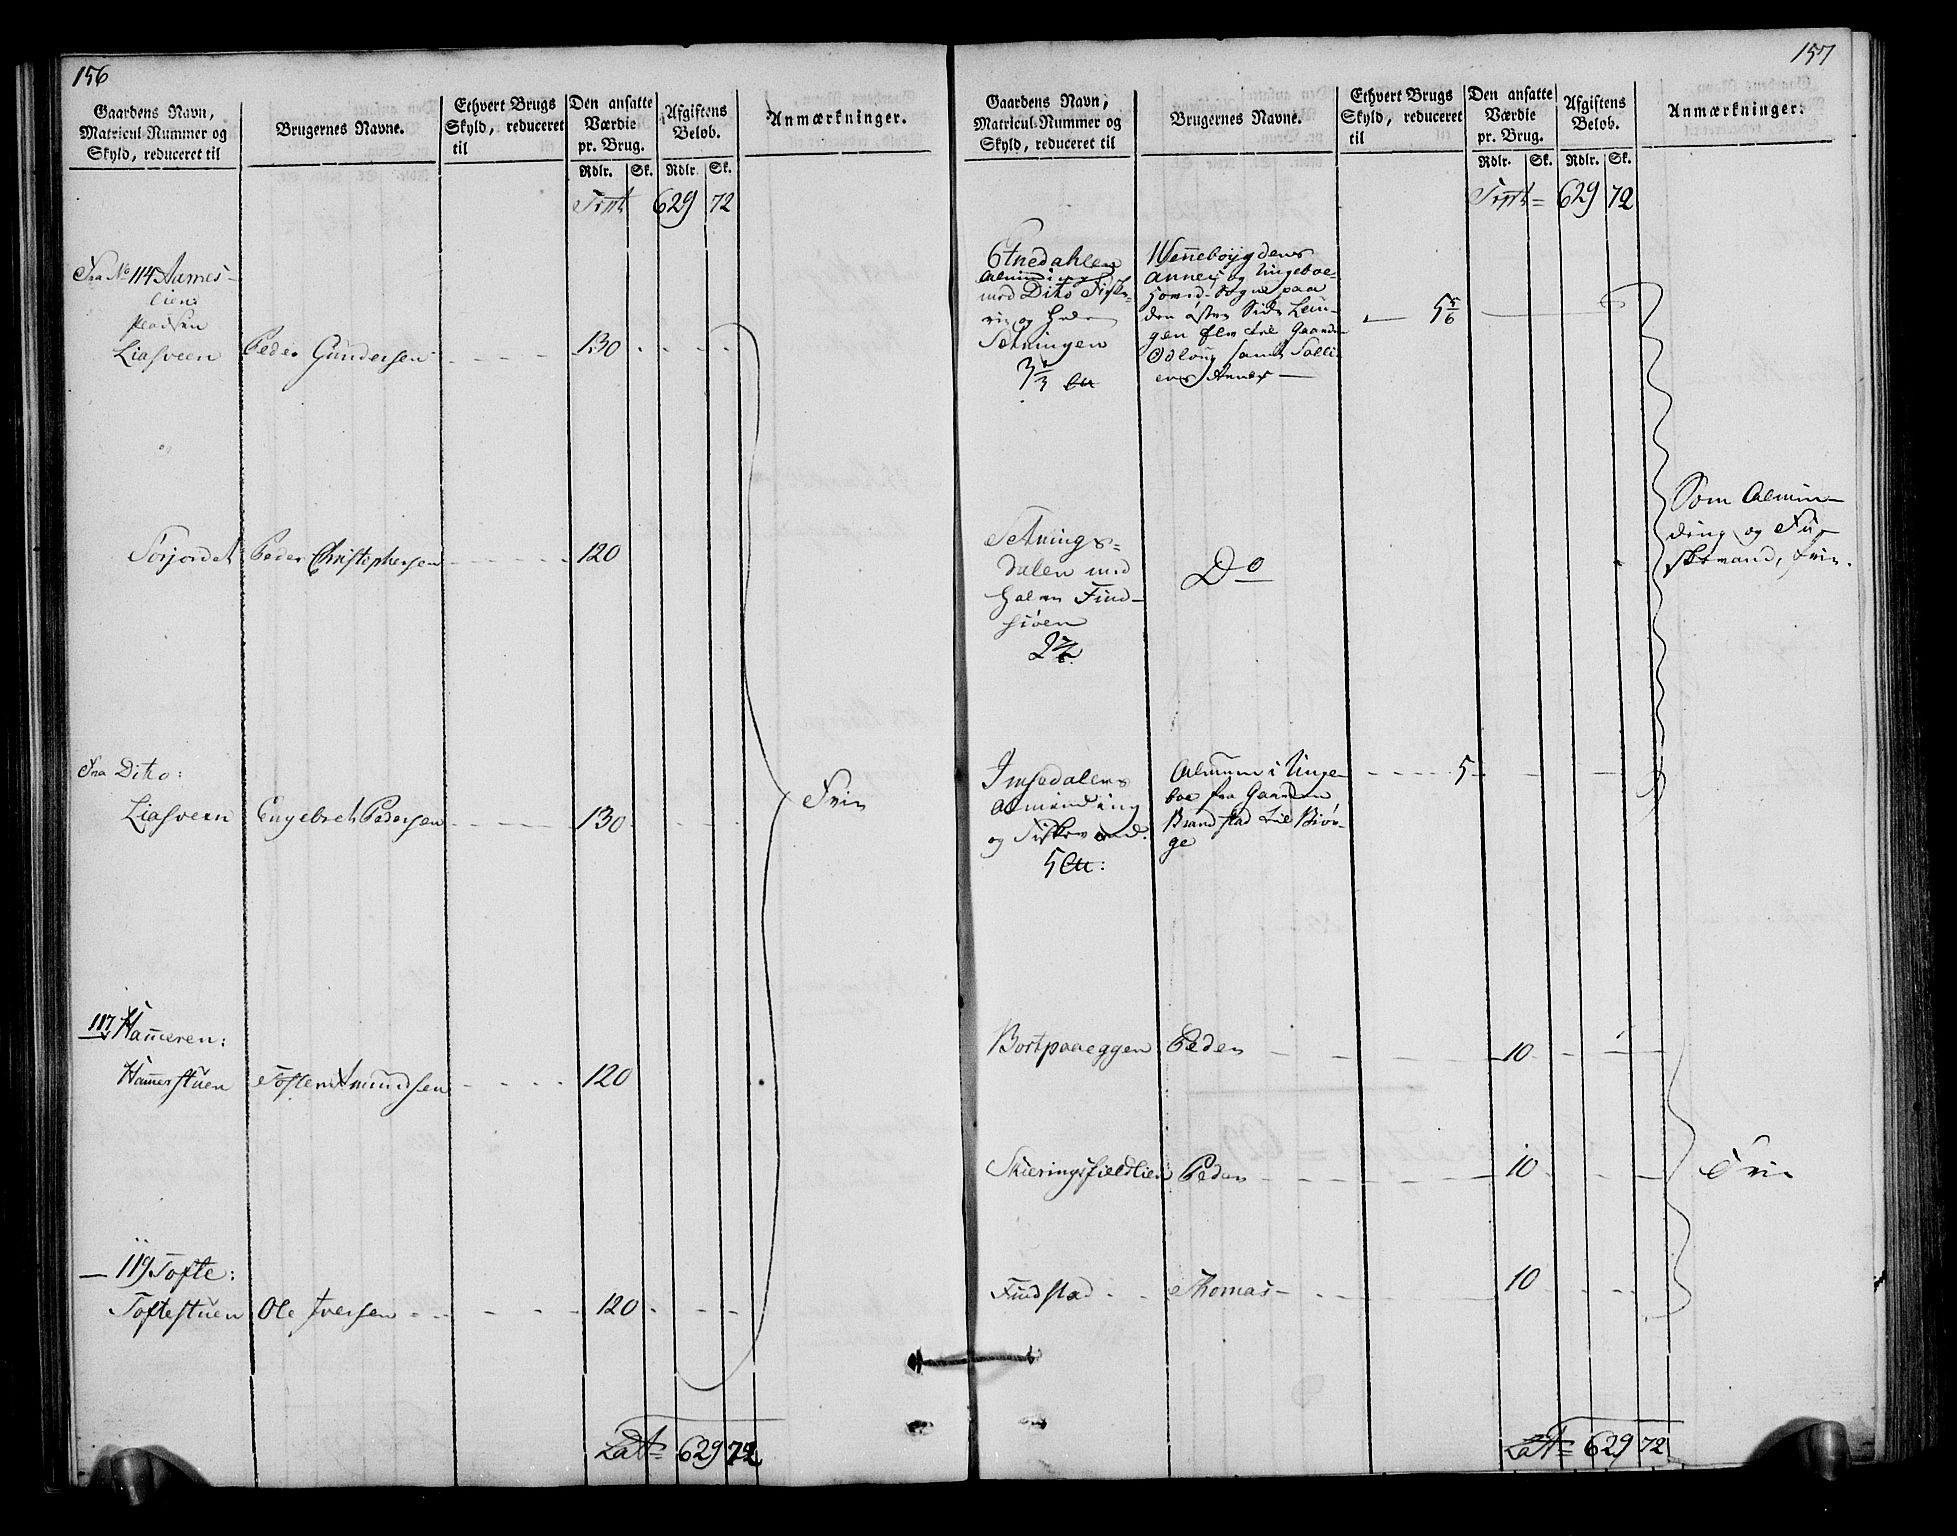 156
Gaardens Navn,
Matricul-Nummer og
Skyld, reduceret til
Brugernes Navne.
Ethvert Brugs
Skyld, reduceret
til
Den ansatte
Værdie
pr. Brug.
Afgiftens
Beløb.
Anmærkninger.
Rdlr. Sk. Rdlr. Sk.
Trpt 629 72
Fra No 114 Aames-
Pladsen
Liasveen Peder Gundersen 130
Sørjordet Peder Christophersen 120
Fra Dito:
Liasveen Engebret Pedersen 130 Frie
117 Hameren:
Hamerstuen Tosten Amundsen 120
119 Tofte:
Toftestuen Ole Iversen 120
Lat 629 72
157
Gaardens Navn,
Matricul-Nummer og
Skyld, reduceret til
Brugernes Navne.
Ethvert Brugs
Skyld, reduceret
til
Den ansatte
Værdie
pr. Brug.
Afgiftens
Beløb.
Anmærkninger.
Rdlr. Sk. Rdlr. Sk.
Trpt 629 72
Etnedahlen
Alminding
med Dito Fiske-
rie og
Setningen
Wenneboygdens
Annex og Ungeboe-
Sogne paa
den østre Side
gen Elv til Gaarden
Odloug samt Solli-
ens Annex
5 5/6
Setnings-
dalen med
halve Find-
siøen
Do
Som Almin-
ding og Fi-
skevand, frie.
Imsedalens
Alminding
og Fiskevand.
5
Almuen i Unge-
boe fra Gaarden
Brandstad til Biør-
ge
5
Bortpaaeggen Peder 10
Skieringsfieldlien Peder 10 Frie
Fundstad Thomas 10
Lat 629 72